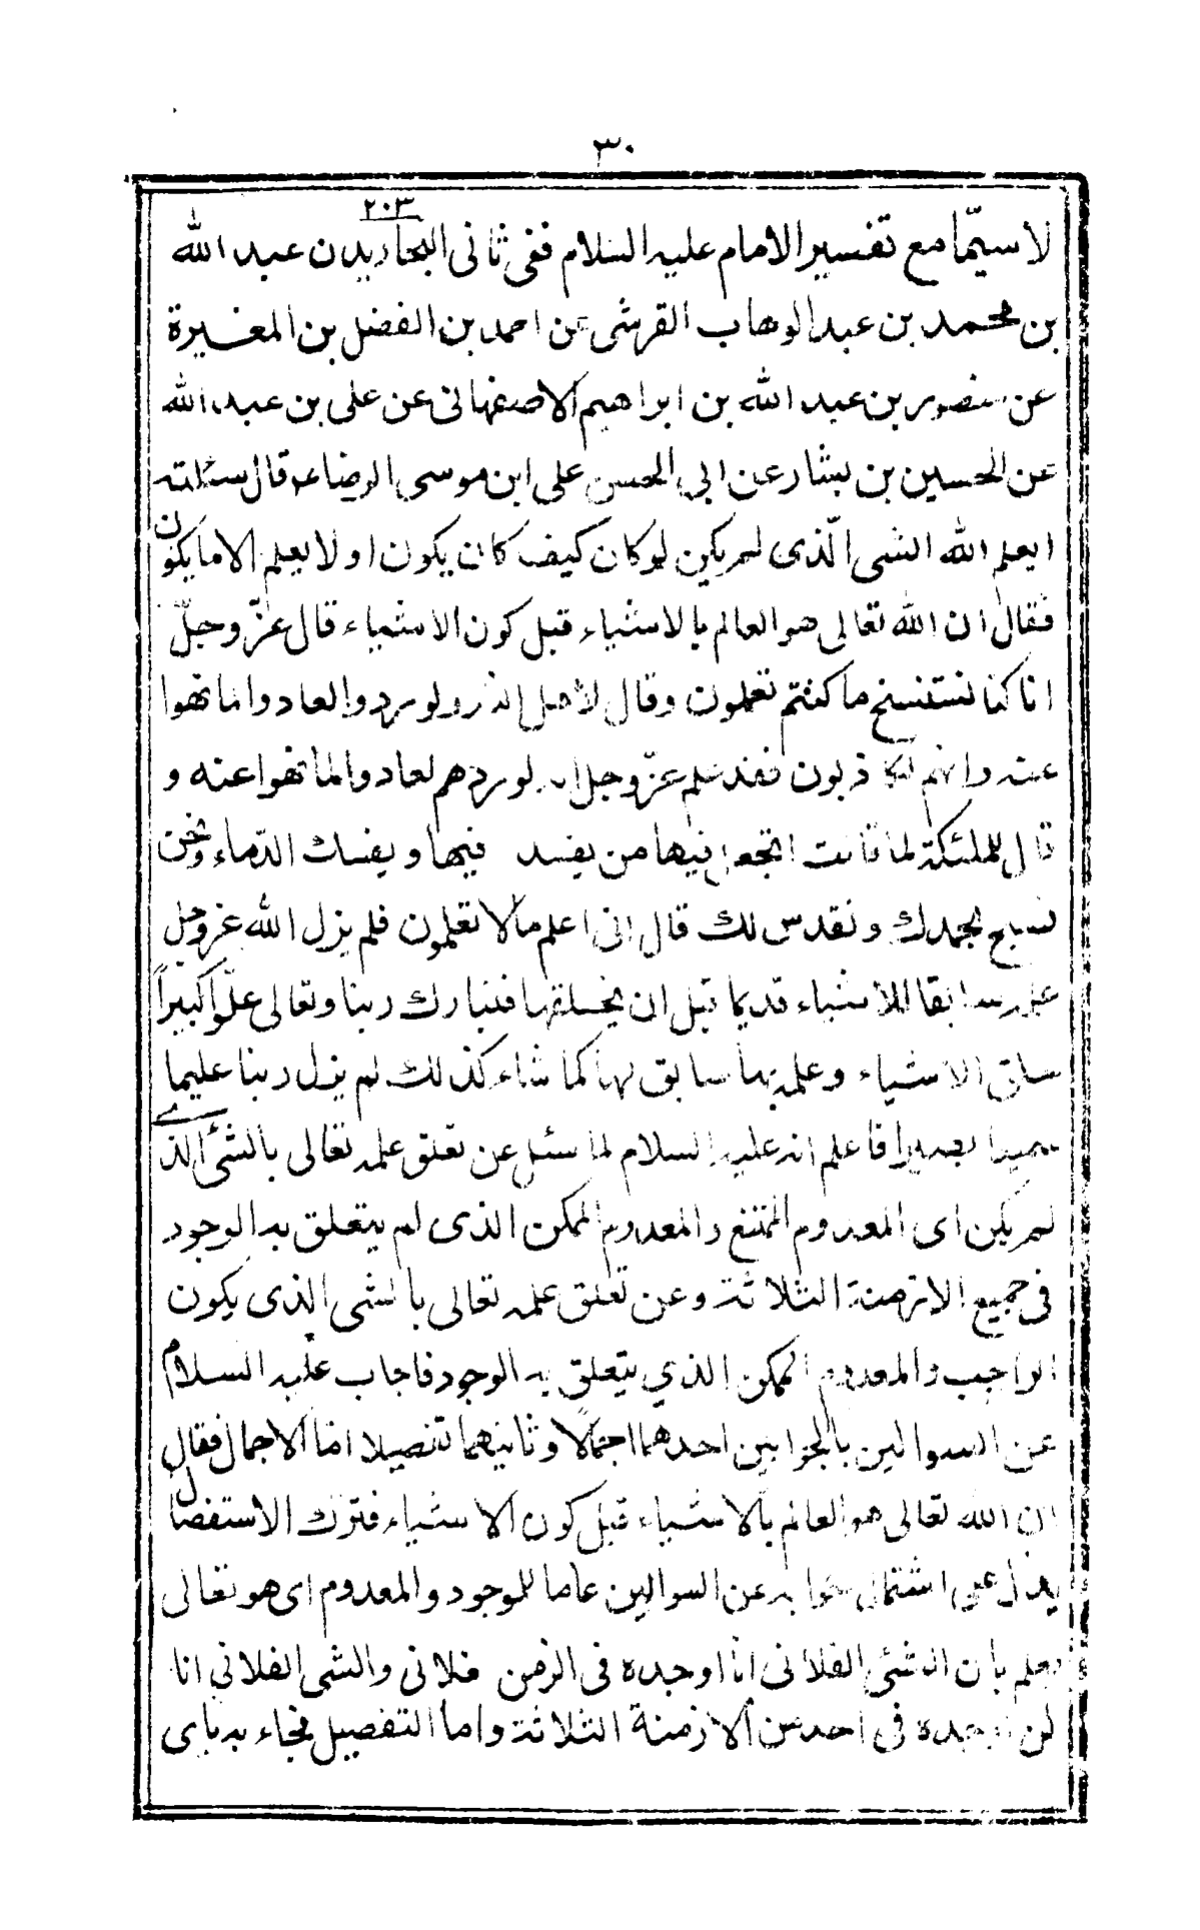 ٣٠
٢٠٣
لا سيّما مع تفسير الامام عليه السلام ففى ثانى البحار يدن عبد الله
بن محمد بن عبد الوهاب القرشى عن احمد بن الفضل بن المغيرة
عن منصور بن عبد الله بن ابراهيم الاصفهانى عن على بن عبد الله
عن الحسين بن بشار عن ابى الحسن على ابن موسى الرضاء قال سئلته
ايعلم الله الشى الّذى لم يكن لو كان كيف كان يكون او لا يعلم الا ما يكون
فقال ان الله تعالى هو العالم بالاشياء قبل كون الاشياء قال عزّ وجلّ
انا كنا نستنسخ ما كنتم تعملون وقال لاهل النار ولو ردوا لعادوا لما نهوا
عنه وانهم لكاذبون فقد علم عزّ وجل انه لو ردهم لعادوا لما نهوا عنه و
قال للملئكة لما قالت اتجعل فيها من يفسد فيها ويفسك الدّماء ونحن
نسبح بحمدك ونقدس لك قال انى اعلم مالا تعلمون فلم يزل الله عز وجل
علمه سابقا للاشياء قديما قبل ان يخلقها فتبارك ربنا وتعالى علّوا كبيراً
خلق الاشياء وعلمه بها سابق لها كما شاء كذلك لم يزل ربنا عليما
سميعا بصيرا فاعلم انه عليه السلام لما سئل عن تعلق علمه تعالى بالشئ الذے
لم يكن اى المعدوم الممتنع والمعدوم الممكن الذى لم يتعلق به الوجود
فى جميع الازمنة الثلاثة وعن تعلق علمه تعالى بالشى الذى يكون
الواجب والمعدوم الممكن الذي يتعلق به الوجود فاجاب عليه السلام
عن السوالين بالجوابين احدهما اجمالا وثانيهما تفصيلا اما الاجمال فقال
ان الله تعالى هو العالم بالاشياء قبل كون الاشياء فترك الاستفصال
يدل على اشتمال جوابه عن السوالين عاما للموجود والمعدوم اى هو تعالى
يعلم بان الشئ الفلانى انا اوجده فى الزمن فلانى والشى الفلانى انا
لن اوجده فى احد من الازمنة الثلاثة واما التفصيل فجاء به باى